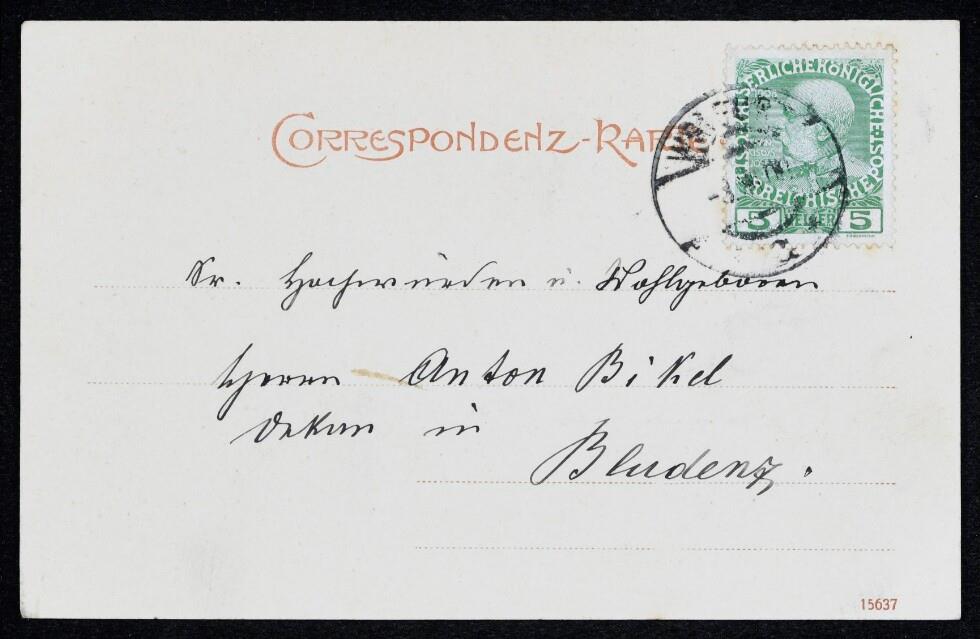 CORRESPONDENZ-KARTE
KAISERLICHE KÖNIGLICHE
ÖSTERREICHISCHE POST
5 HELLER 5
Sr. Hochwürden u. Wohlgeboren
Herrn Anton Bikel
Dekan in
Bludenz.
15637